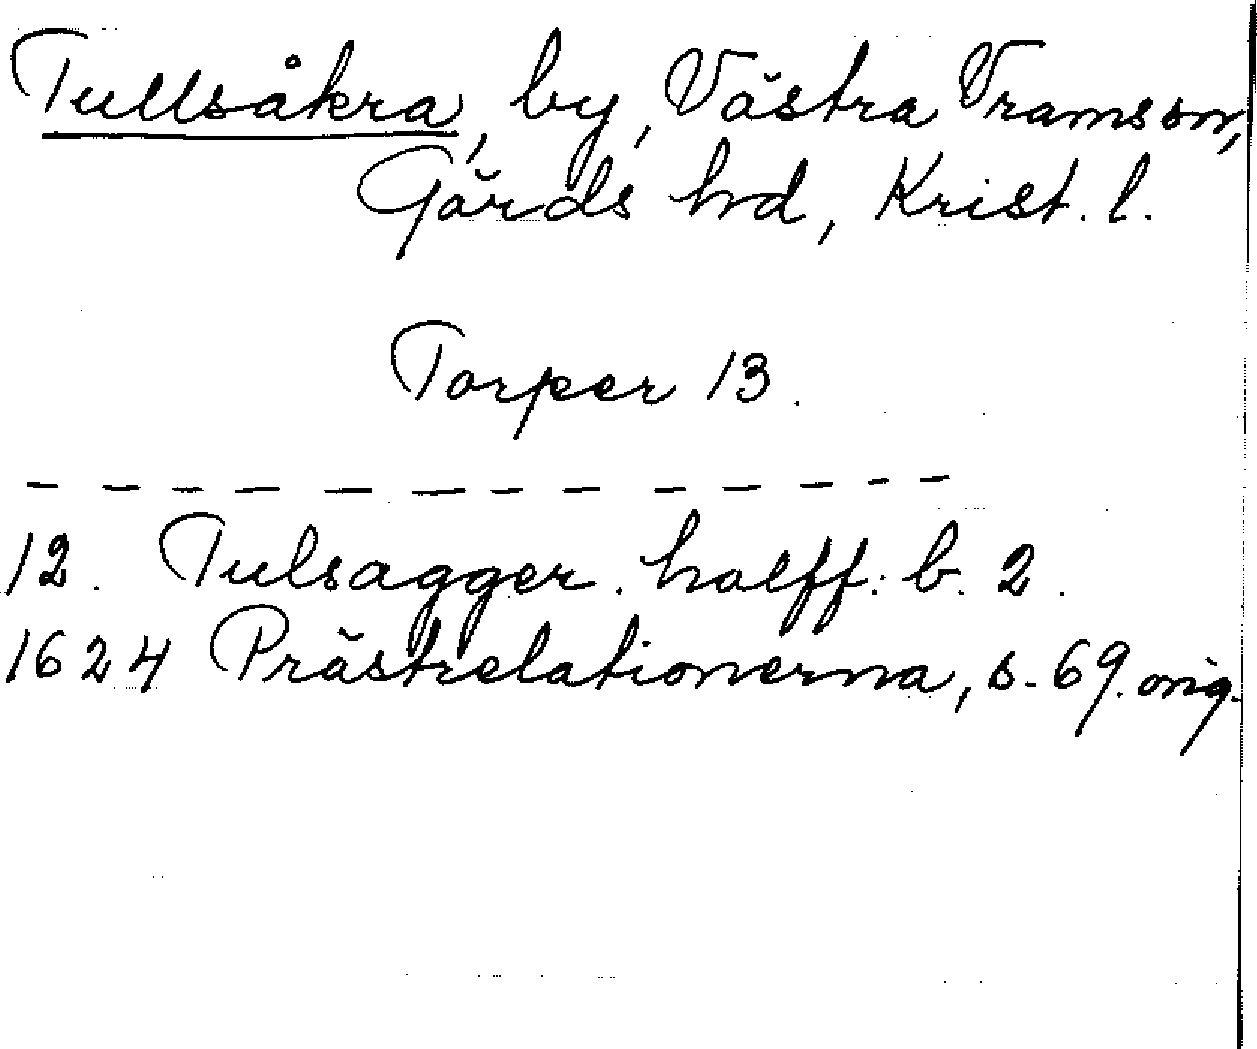 Tullsåkra, by, Västra Vram sn,
Gärds hd, Krist. l.
Torper 13.
12. Tulsagger. halff: b. 2.
1624 Prästrelationerna, s. 69. orig.